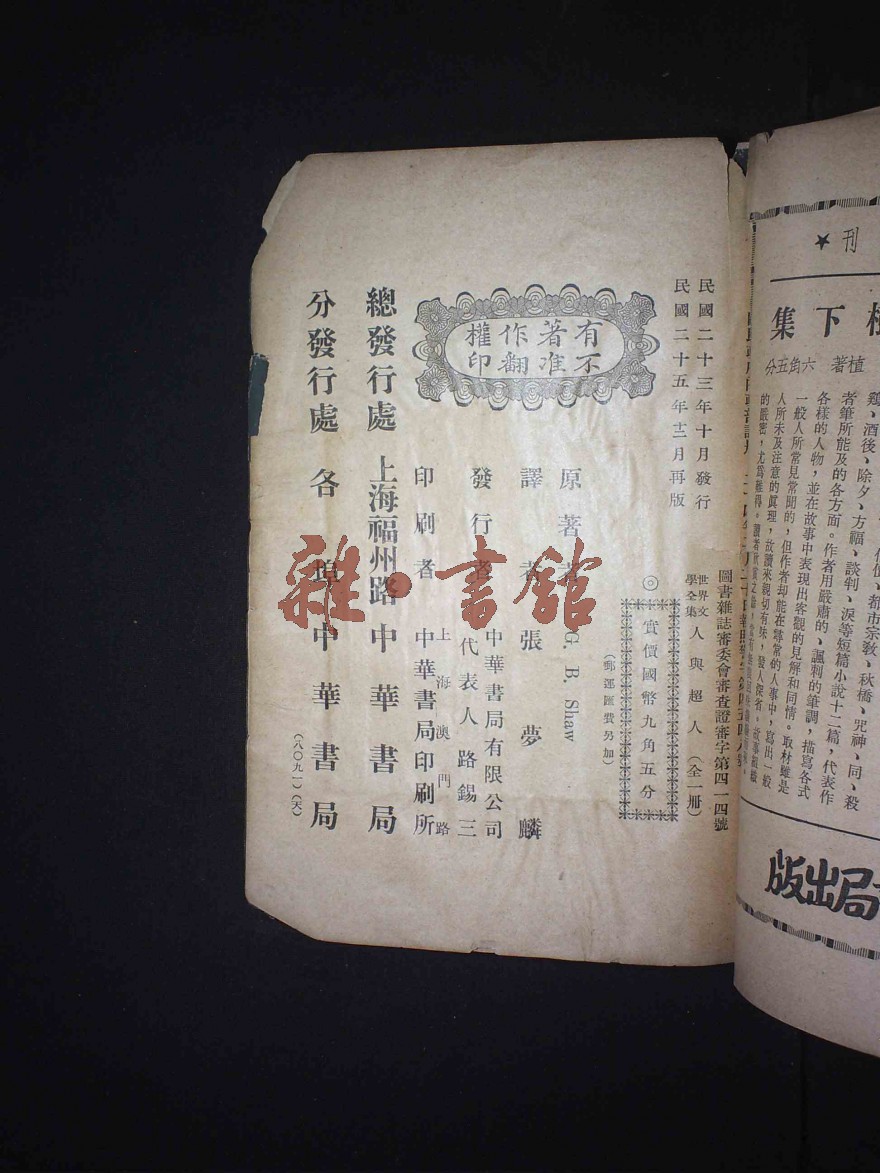 民國二十三年十月發行
民國二十五年十二月再版
圖書雜誌審委會審查證審字第四一四號
世界文學全集 人與超人(全一册)
◎實價國幣九角五分
(郵運匯費另加)
有著作權
不准翻印
原著者 G. B. Shaw
譯者 張夢麟
發行者 中華書局有限公司
代表人路錫三
上海澳門路
印刷者 中華書局印刷所
總發行處 上海福州路 中華書局
分發行處 各埠 中華書局
(八〇九一)(天)
雜·書館
刊★
下集
植著 六角五分
鷄、酒後、除夕、方福、談判、淚等短篇小說十二篇,代表作
者筆所能及的各方面。作者用嚴肅的、諷刺的筆調,描寫各式
各樣的人物,並在故事中表現出客觀的見解和同情。取材雖是
一般人所常見常聞的,但作者却能在尋常的人事中,寫出一般
人所未及注意的眞理,故讀來親切有味,發人深省。
的嚴密,尤爲難得。
都市宗教、秋橋、咒神、同、殺
局出版